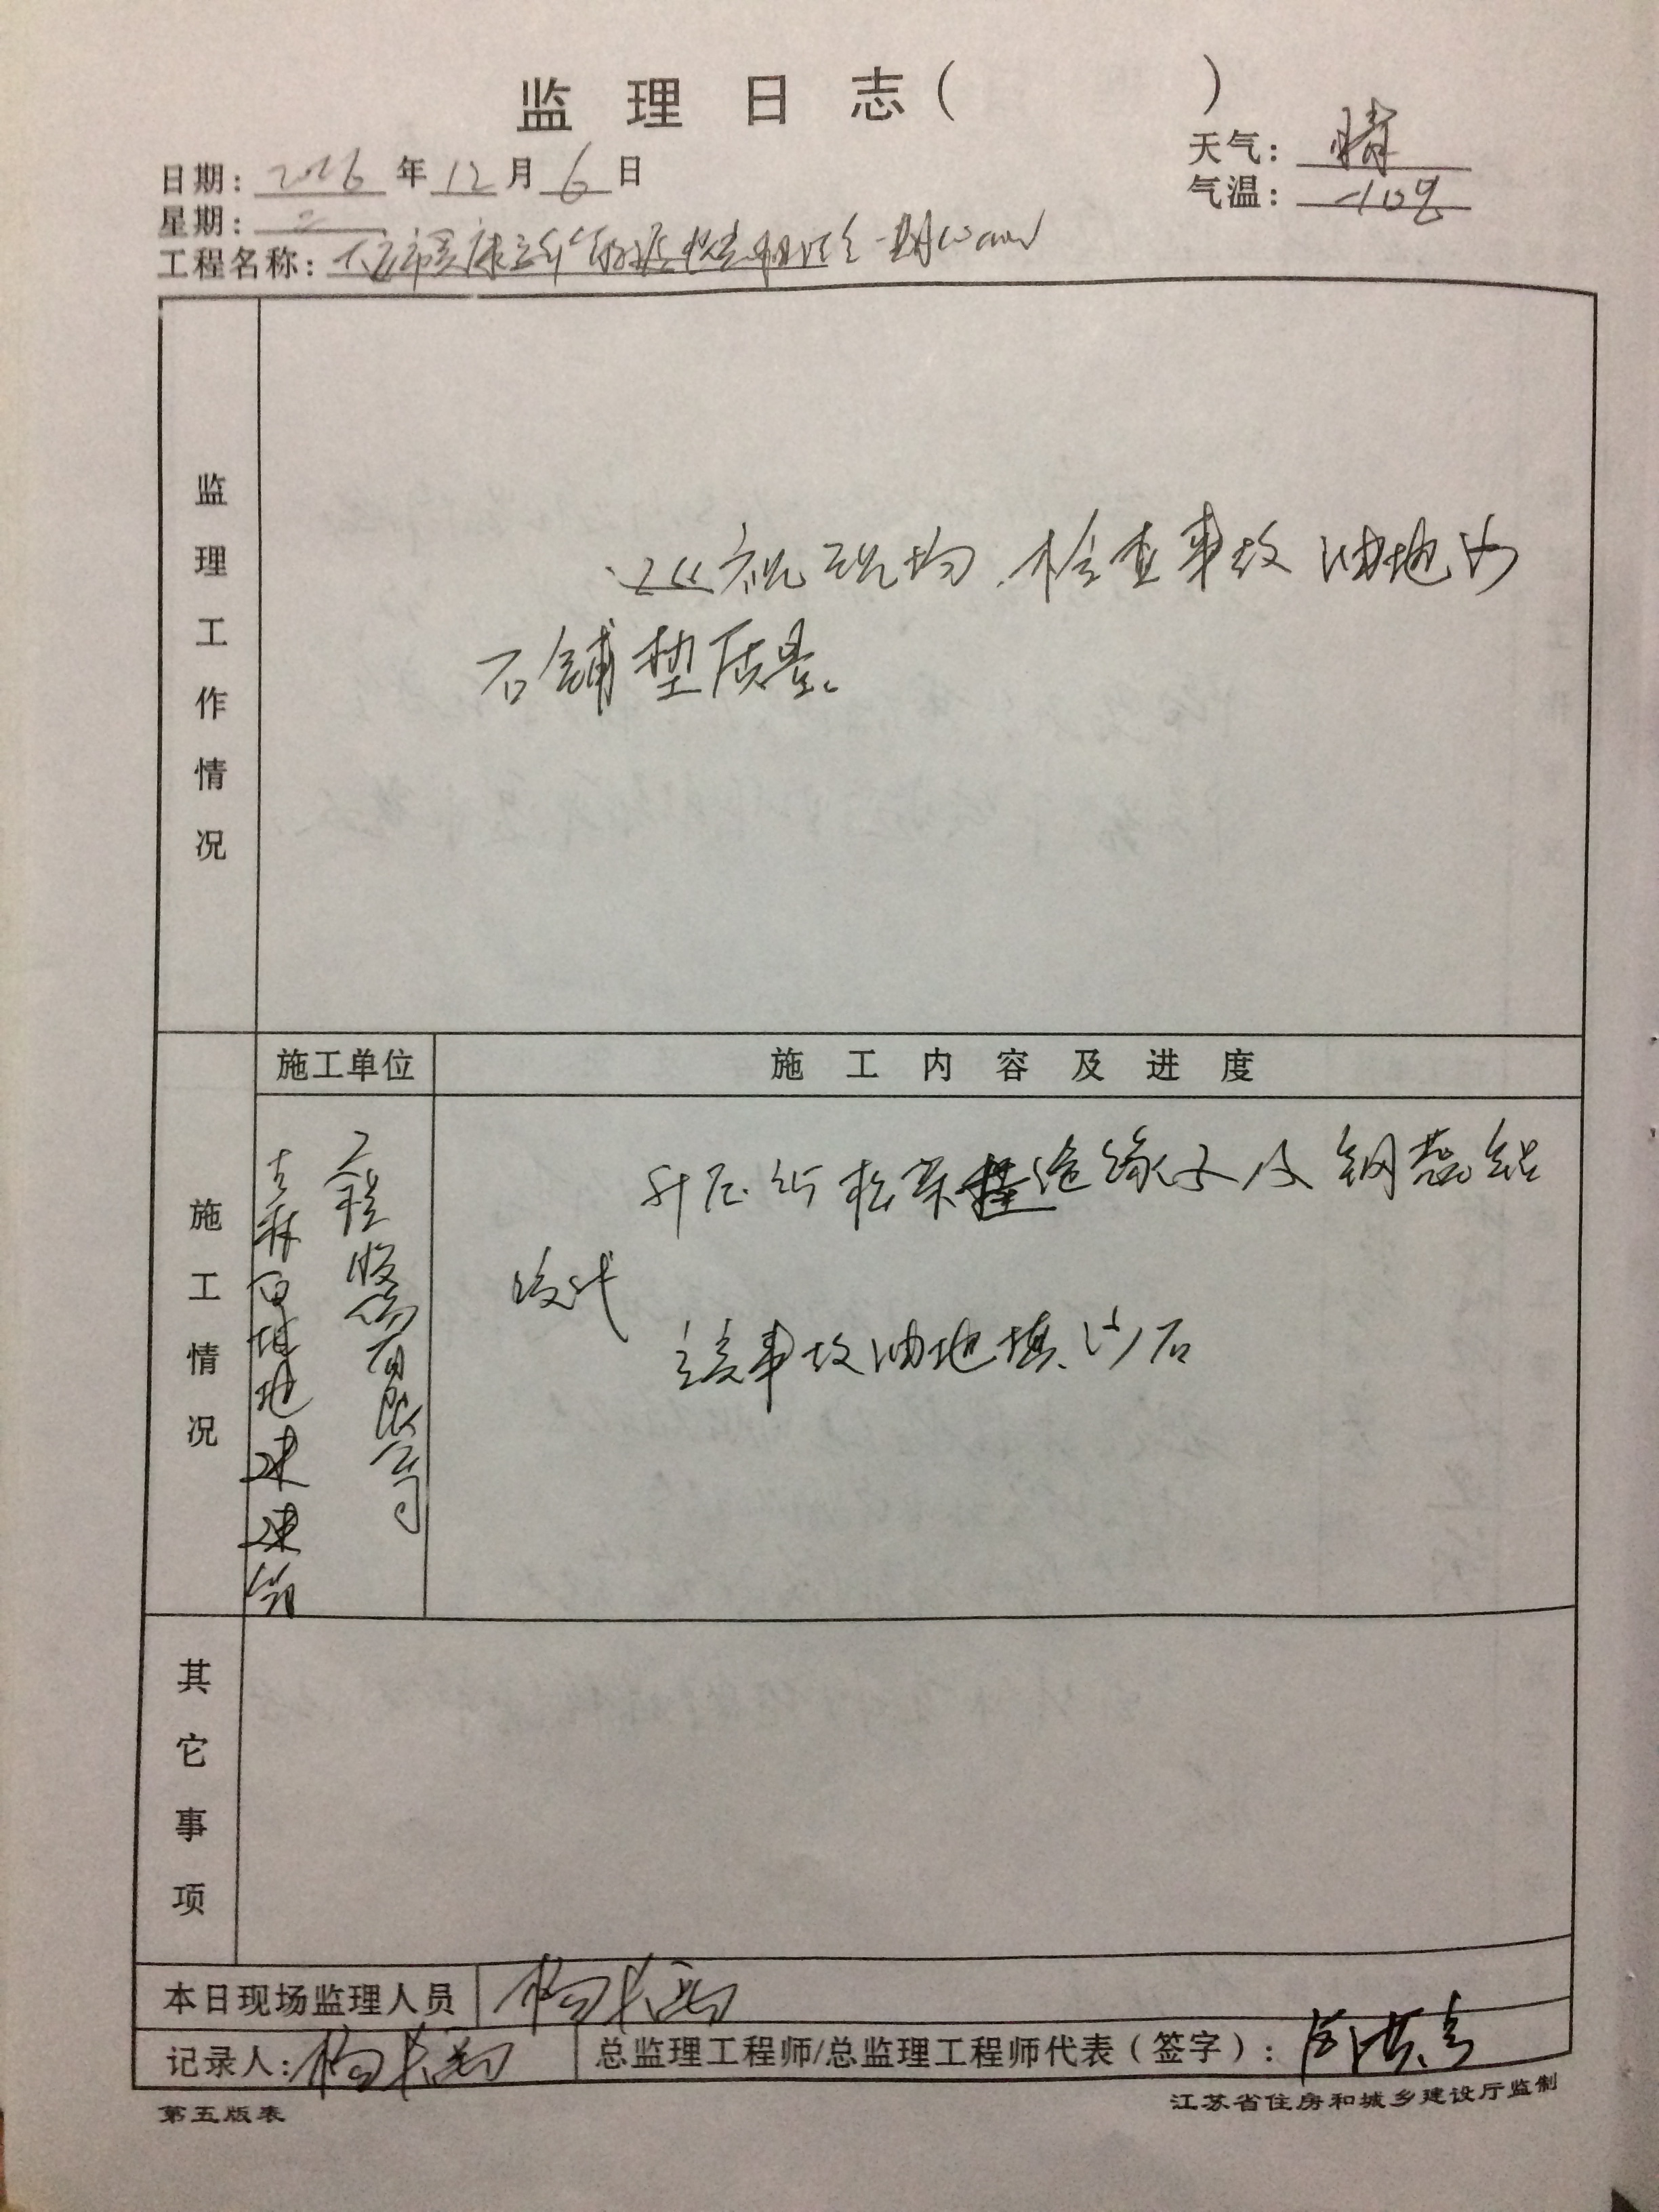 监理日志（　　　）
日期：2016年12月6日
天气：晴
星期：二
气温：-10℃
工程名称：
监理工作情况
巡视现场，检查事故油池沙
石铺垫质量。
施工单位
施工内容及进度
施工情况
吉林百堤地建建筑
工程股份有限公司
升压站构架挂绝缘子及钢芯铝
绞线
主变事故油池填沙石
其它事项
本日现场监理人员
记录人：
总监理工程师/总监理工程师代表（签字）：
第五版表
江苏省住房和城乡建设厅监制